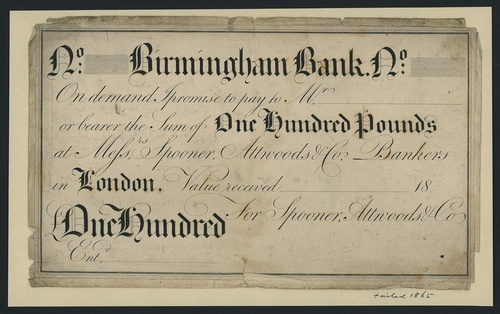 No. Birmingham Bank. No.
On demand I promise to pay to Mr.
or bearer the Sum of One Hundred Pounds
at Meſs.rs Spooner, Attwoods & Co. Bankers
in London. Value received 18
£One Hundred For Spooner, Attwoods & Co.
Ent.d
failed 1865